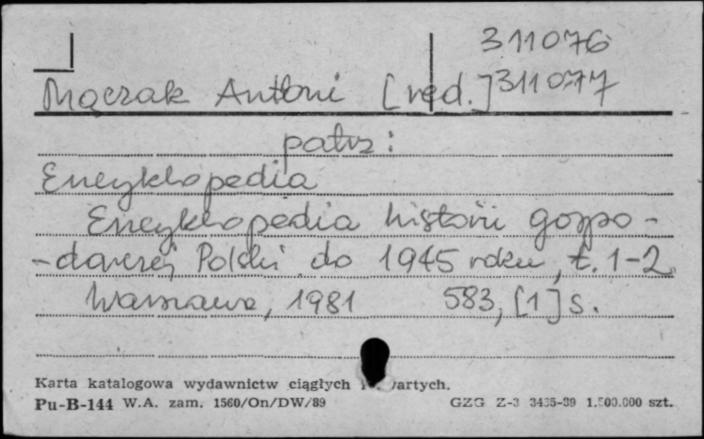 311076
Mączak Antoni [red.] 311077
patrz:
Encyklopedia
Encyklopedia historii gospo-
-darczej Polski do 1945 roku, t. 1-2
Warszawa, 1981 583, [1] s.
Karta katalogowa wydawnictw ciągłych i zwartych.
Pu-B-144 W.A. zam. 1560/On/DW/89 GZG Z-3 3435-89 1.500.000 szt.